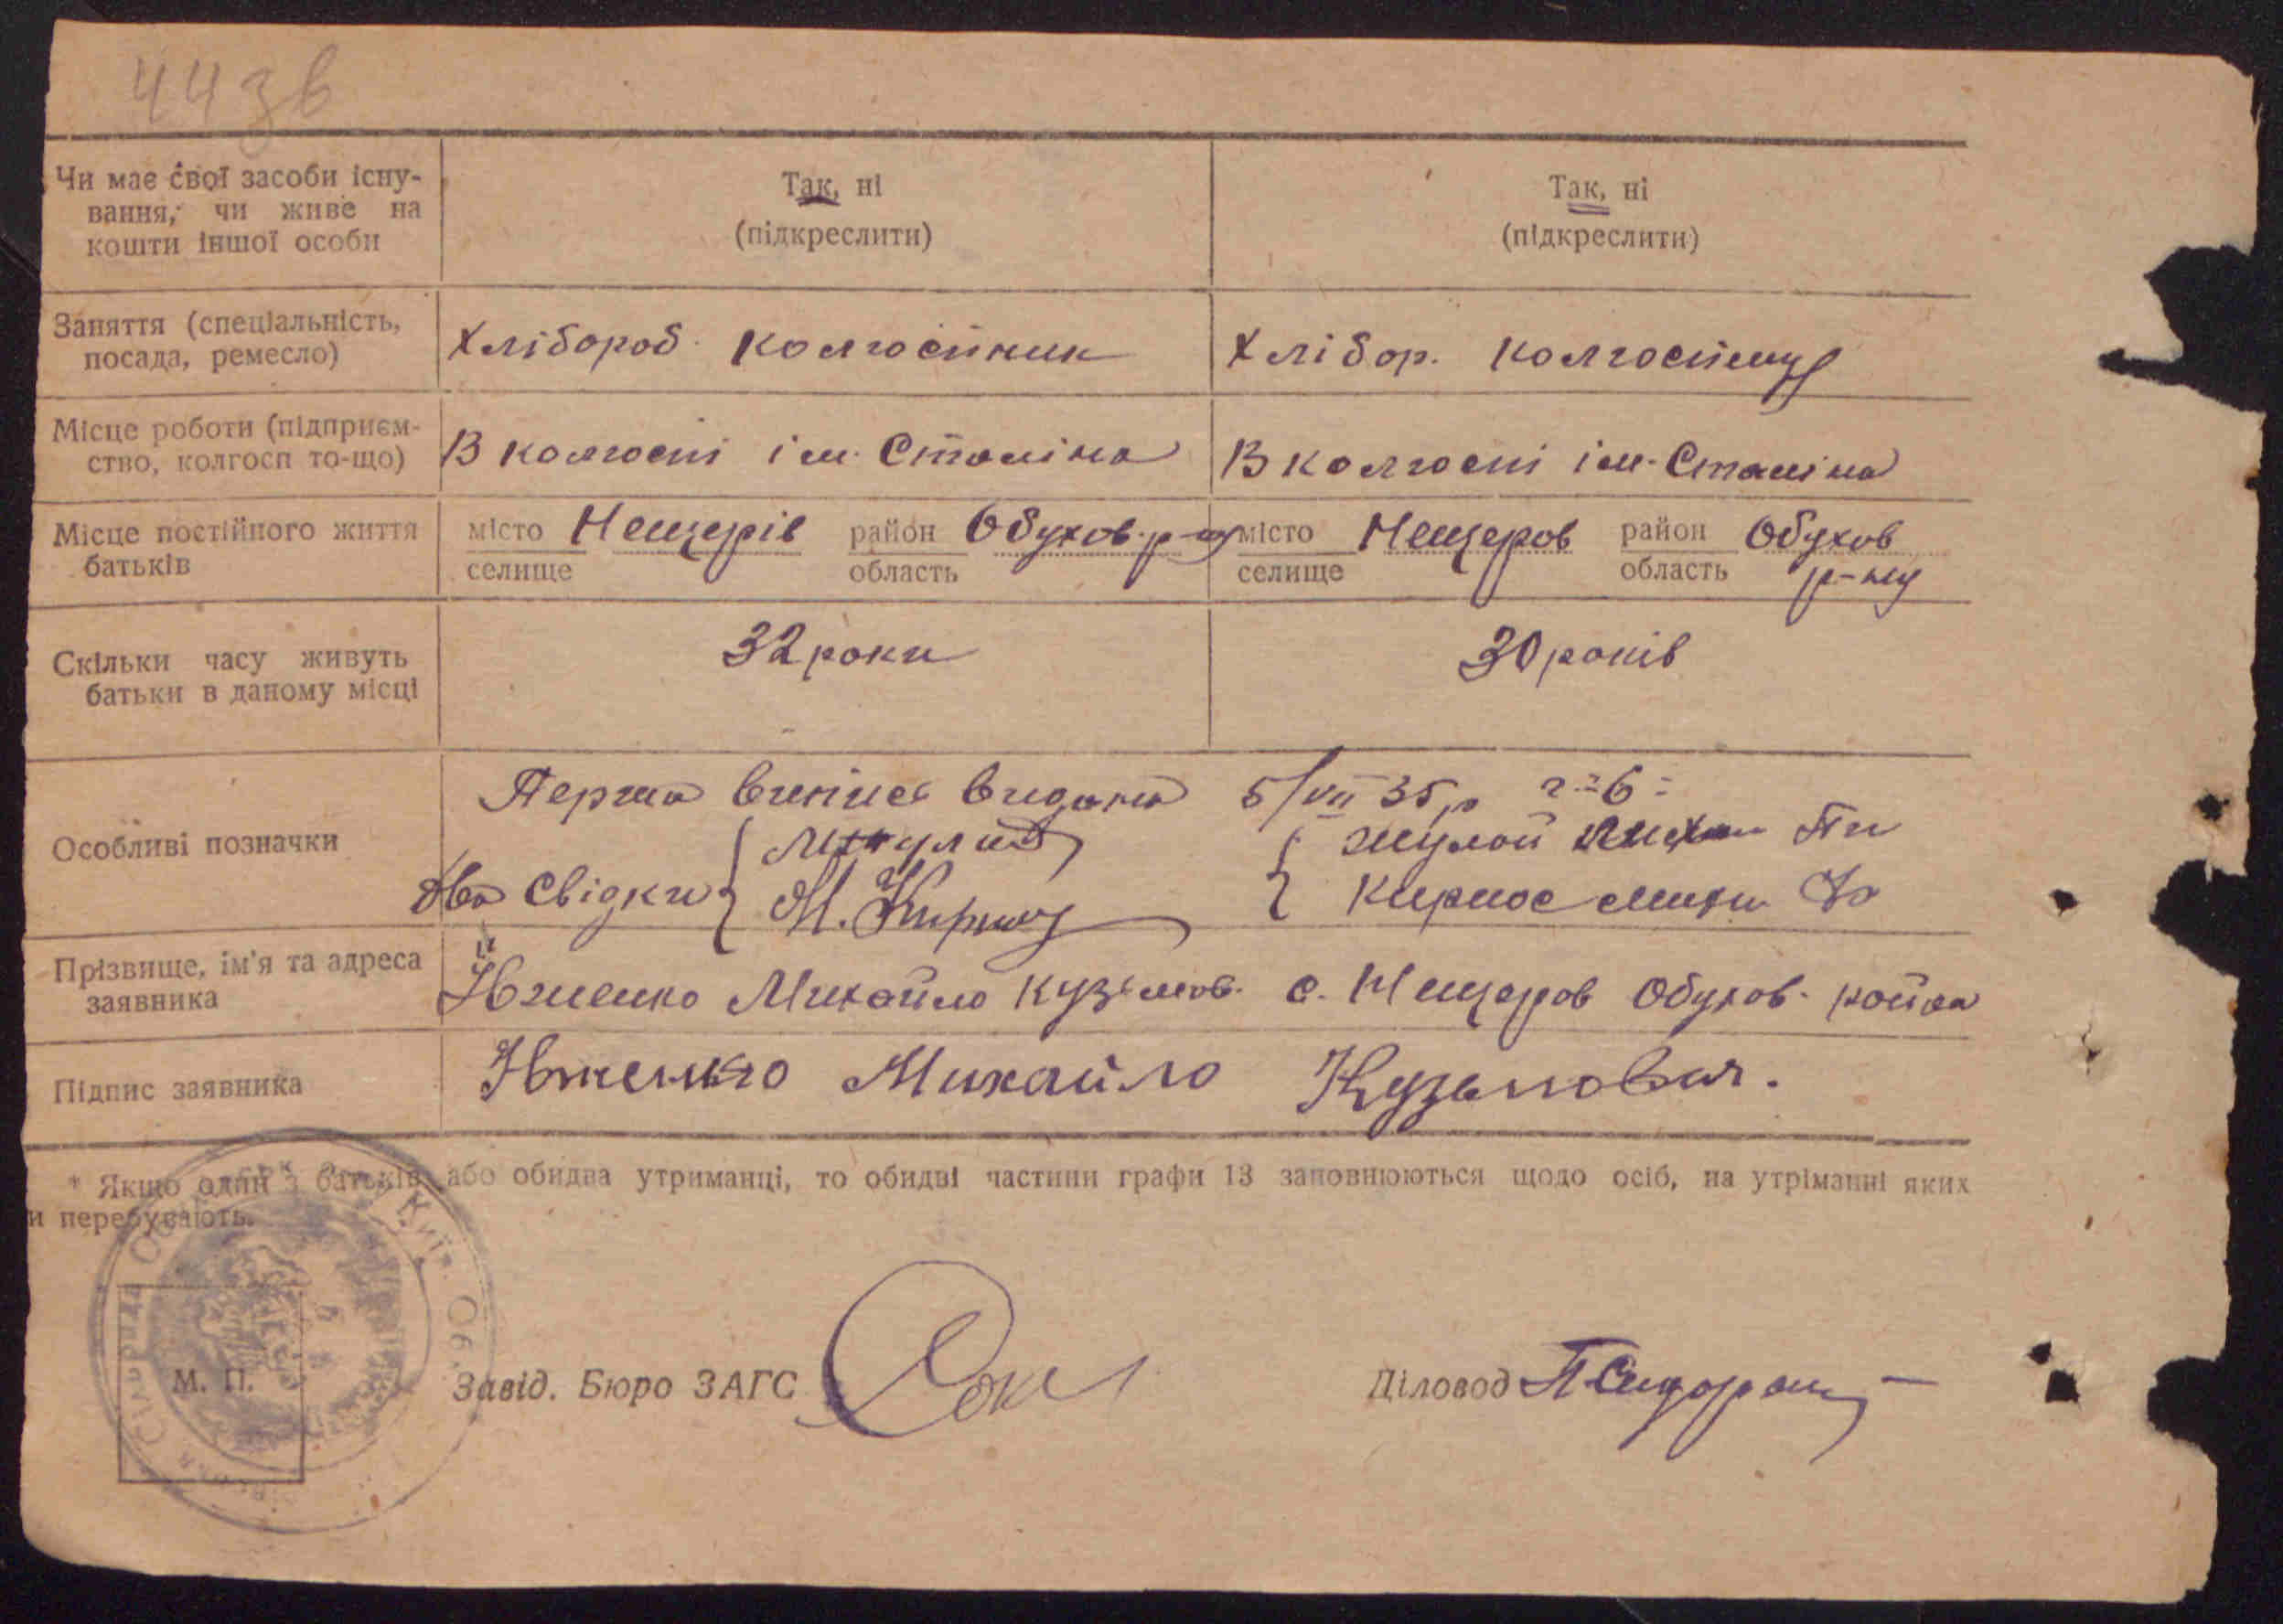 44 зв
Чи має свої засоби існу-
вання, чи живе на
кошти іншої особи
Так, ні
(підкреслити)
Так, ні
(підкреслити)
Заняття (спеціальність,
посада, ремесло)
Хлібороб колгоспник
Хлібор. колгоспниц
Місце роботи (підприєм-
ство, колгосп то-що)
В колгоспі ім. Сталіна
В колгоспі ім. Сталіна
Місце постійного життя
батьків
місто Нещерів район Обухов. р-ну
селище область
місто Нещеров район Обухов
селище область р-ну
Скільки часу живуть
батьки в даному місці
32 роки
30 років
Особливі позначки
Перша виписа видана 5/VII 35 р
Два свідки
М. Кирнос
Кирнос
Прізвище, ім'я та адреса
заявника
Михайло Кузьмов. с. Нещеров Обухов. району
Підпис заявника
Михайло Кузьмович.
* Якщо один з батьків або обидва утриманці, то обидві частини графи 13 заповнюються щодо осіб, на утріманні яких
и перебувають.
М. П.
Завід. Бюро ЗАГС
Діловод